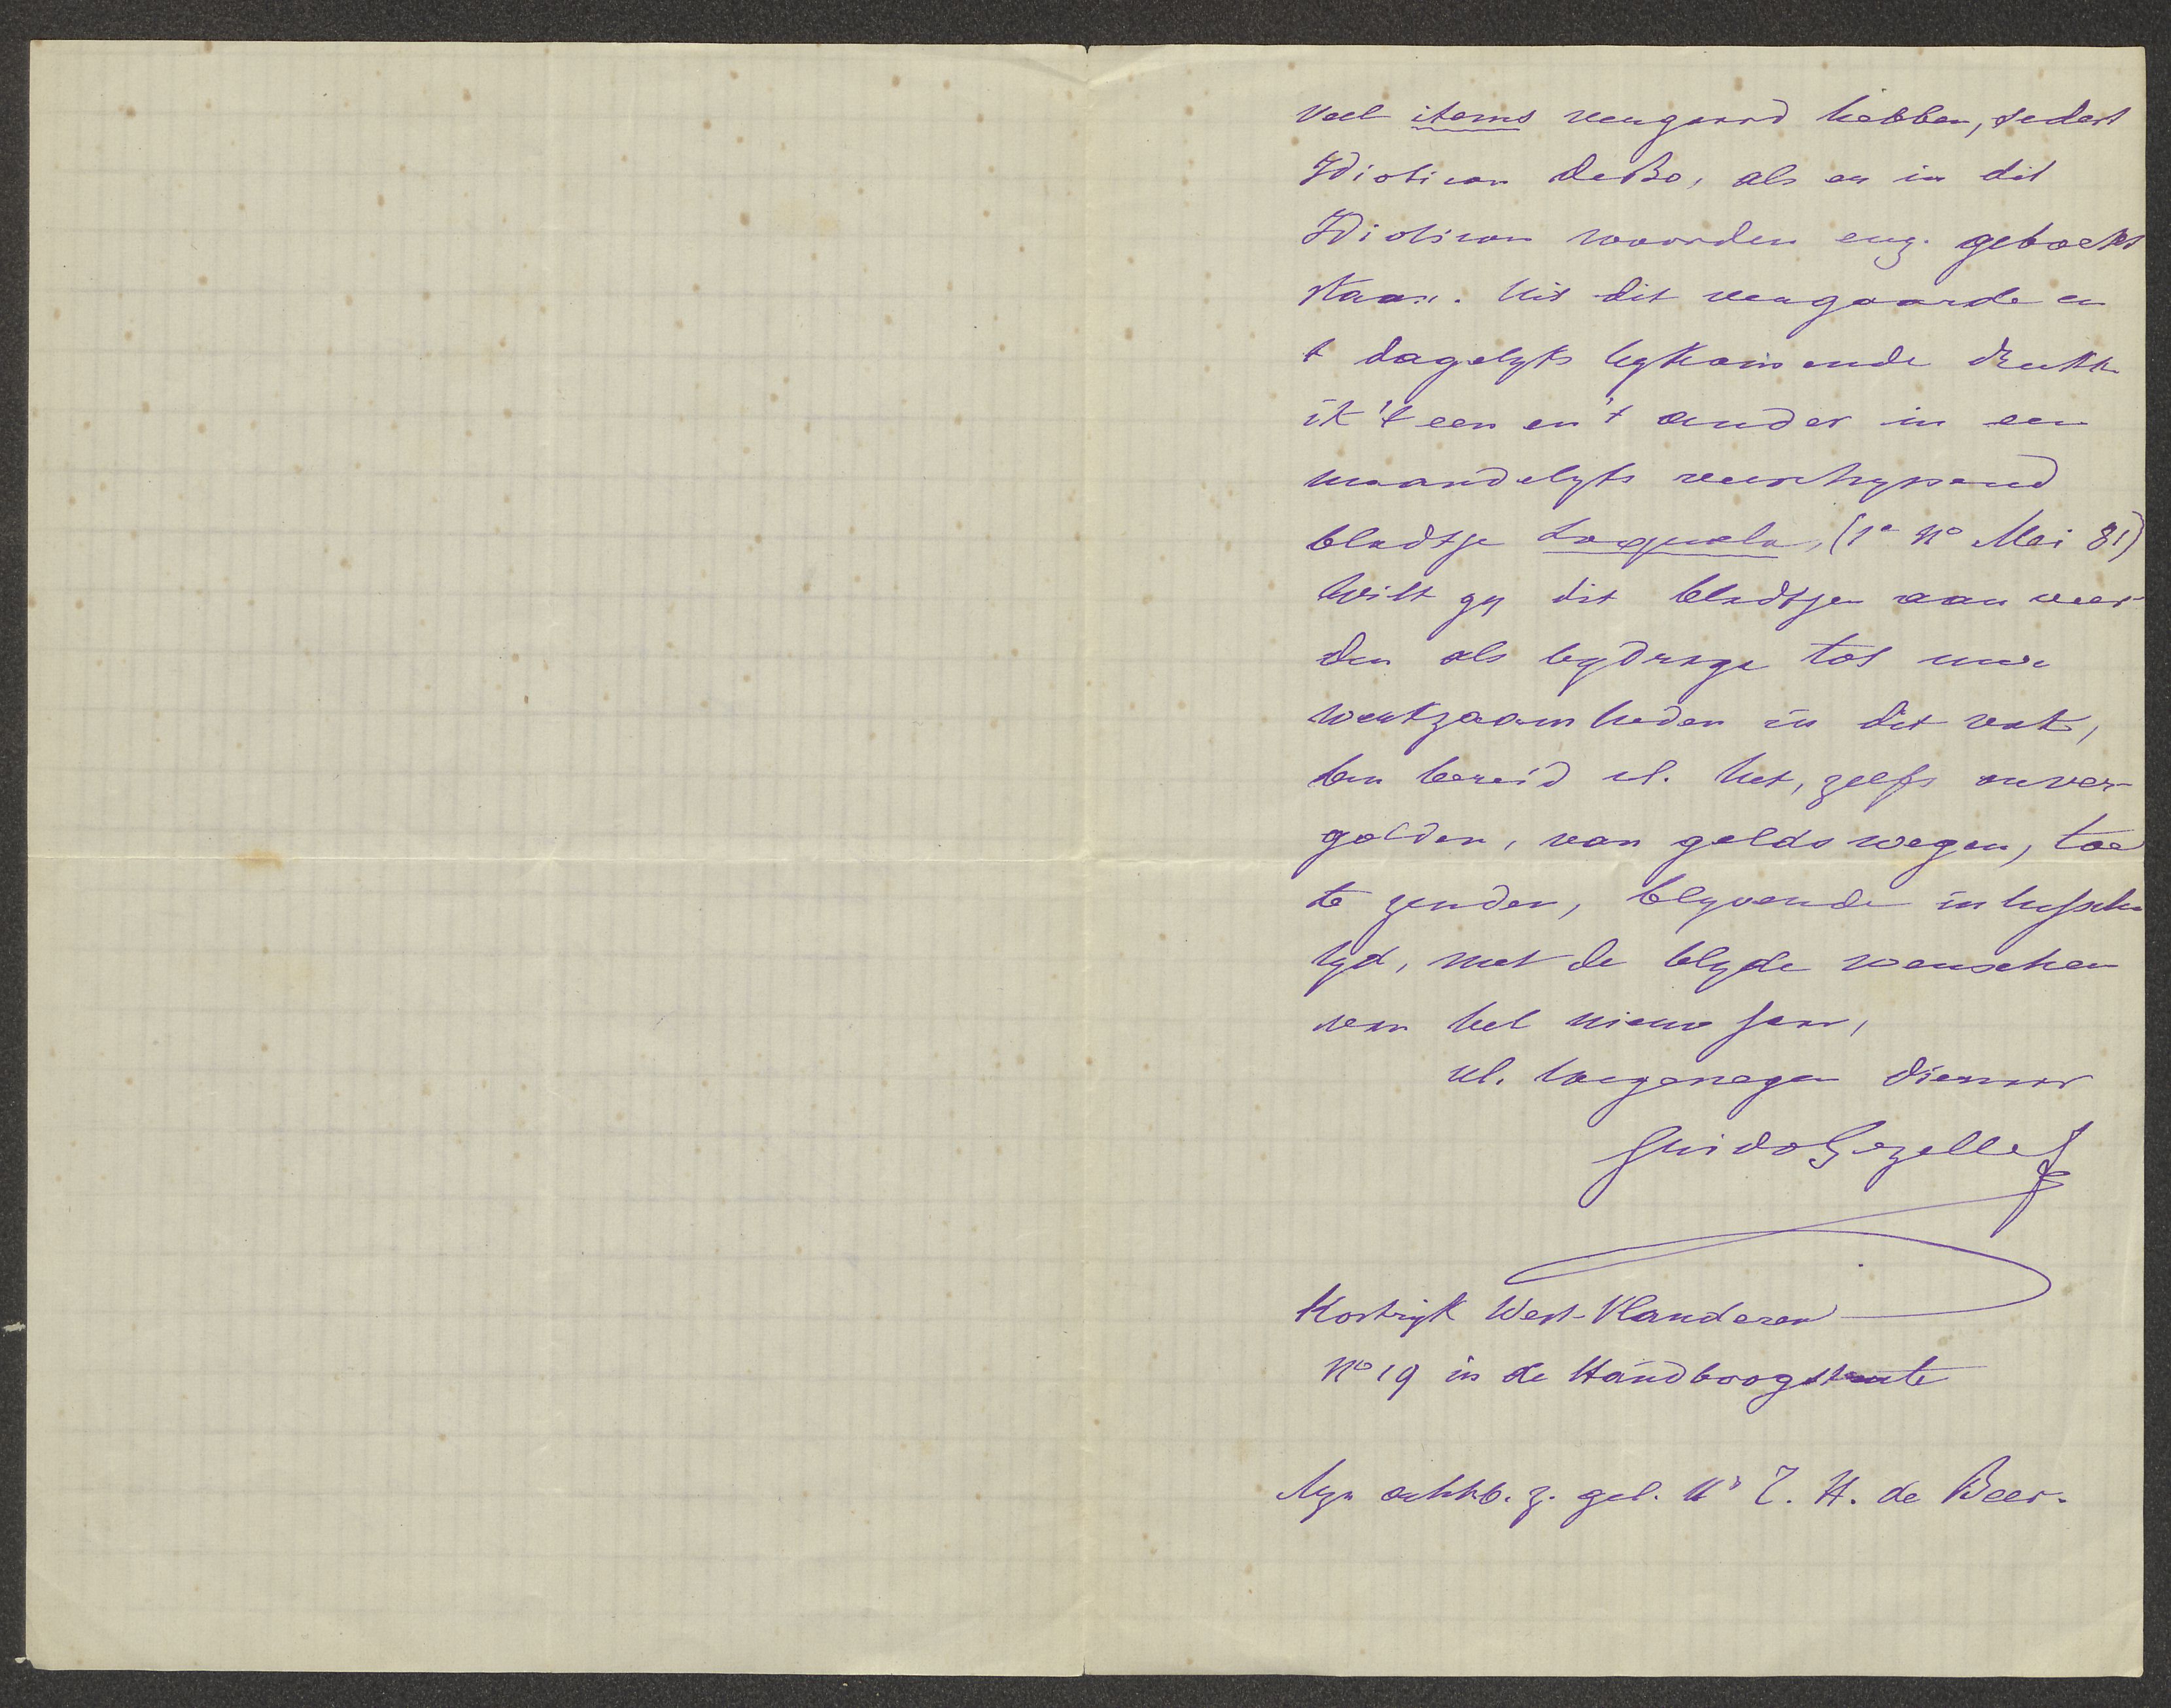 veel items vergaard hebben, sedert
Idioticon DeBo, als er in dit
Idioticon woorden enz. geboekt
staan. Uit dit vergaarde en
't dagelyks bykomende drukke
ik 't een en 't ander in een
maandelyks verschynend
bladtje Loquela, (1e No Mei 81)
Wilt gy dit bladtjen aanveer-
den als bydrage tot uwe
werkzaamheden in dit vak,
ben bereid ul. het, zelfs onver-
golden, van geldswegen, toe
te zenden, blyvende
met de blyde wenschen
van het nieuwjaar,
ul. toegenegen dienaar
Guido Gezelle
Kortryk West-Vlanderen
No 19 in de Handboogstrate
Myn achtb. z. gel. Hr T. H. de Beer.